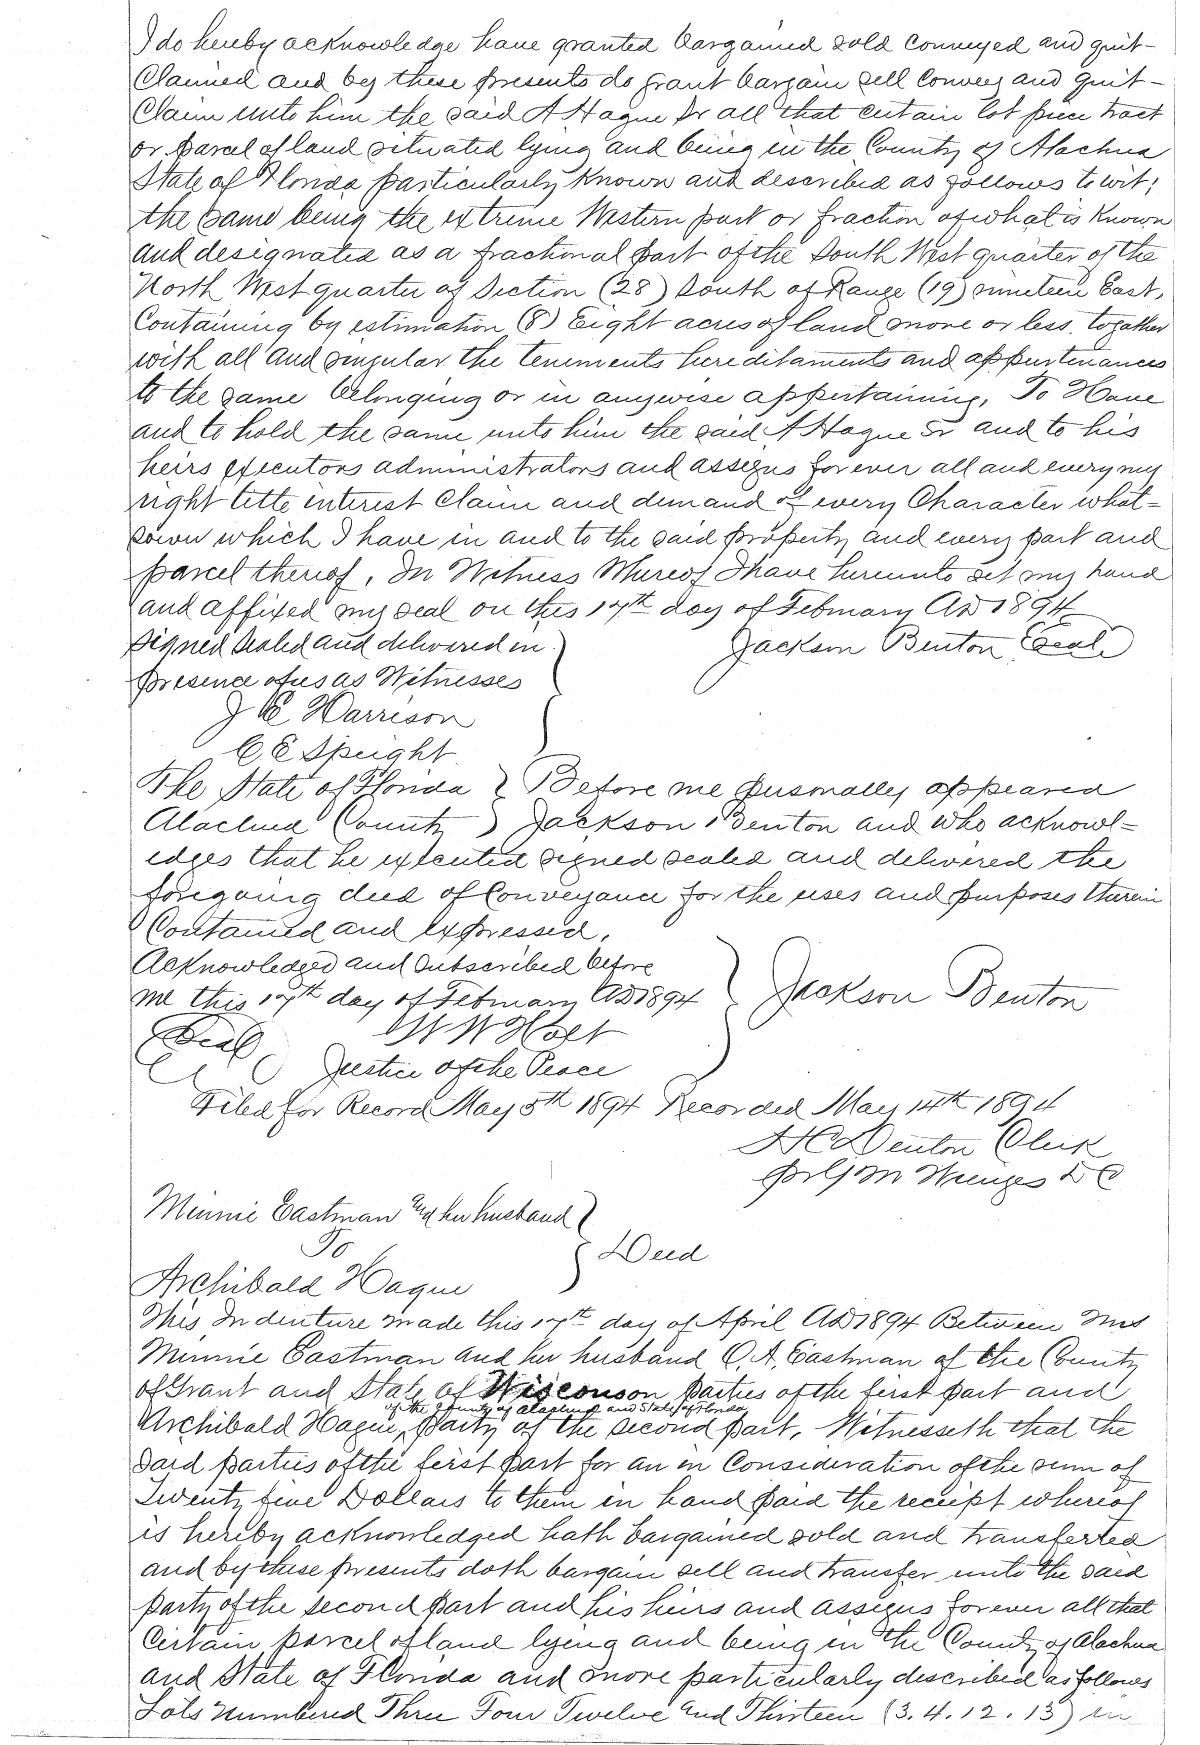 I do hereby acknowledge have granted bargained sold conveyed and quit-
Claimed and by these presents do grant bargain sell convey and quit-
Claim unto him the said A Hague Sr all that certain lot piece tract
or parcel of land situated lying and being in the County of Alachua
State of Florida particularly known and described as follows to wit;
the same being the extreme Western part or fraction of what is known
and designated as a fractional part of the South West quarter of the
North West quarter of Section (28) South of Range (19) nineteen East,
Containing by estimation (8) Eight acres of land more or less. together
with all and singular the tenements hereditaments and appurtenances
to the same belonging or in anywise appertaining, To Have
and to hold the same unto him the said A Hague Sr and to his
heirs executors administrators and assigns forever all and every my
right title interest Claim and demand of every Character what-
soever which I have in and to the said property and every part and
parcel thereof, In Witness Whereof I have hereunto set my hand
and affixed my seal on this 17th day of February AD 1894
Signed Sealed and delivered in } Jackson Benton (Seal)
presence of us as Witnesses
J E Harrison
C E Speight
The State of Florida } Before me personally appeared
Alachua County } Jackson Benton and who acknowl=
edges that he executed signed sealed and delivered the
foregoing deed of Conveyance for the uses and purposes therein
Contained and expressed,
Acknowledged and subscribed before
me this 17th day of February AD 1894 } Jackson Benton
(Seal) W W Holt
Justice of the Peace
Filed for Record May 5th 1894 Recorded May 14th 1894
H C Denton Clerk
pr G M D C
Minnie Eastman and her husband }
To } Deed
Archibald Hague
This Indenture made this 17th day of April AD 1894 Between Mrs
Minnie Eastman and her husband O. A. Eastman of the County
of Grant and State of Wisconson parties of the first part and
of the County of Alachua and State of Florida
Archibald Hague ^ party of the second part, Witnesseth that the
said parties of the first part for an in Consideration of the sum of
Twenty five Dollars to them in hand paid the receipt whereof
is hereby acknowledged hath bargained sold and transferred
and by these presents doth bargain sell and transfer unto the said
party of the second part and his heirs and assigns forever all that
Certain parcel of land lying and being in the County of Alachua
and State of Florida and more particularly described as follows
Lots numbered Three Four Twelve and Thirteen (3. 4. 12. 13) in